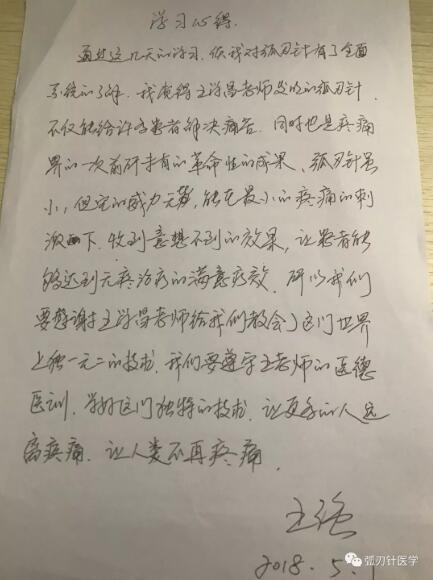 学习心得.
通过这几天的学习.使我对弧刃针有了全面
系统的了解.我觉得王学昌老师发明的弧刃针.
不仅能给许多患者解决痛苦.同时也是疼痛
界的一次前所未有的革命性的成果.弧刃针虽
小,但它的威力无穷,能在最小的疼痛的刺
激下.收到意想不到的效果,让患者能
够达到无疼治疗的满意疗效.所以我们
要感谢王学昌老师给我们教会了这门世界
上独一无二的技术.我们要遵守王老师的医德
医训.学好这门独特的技术.让更多的人远
离疾痛.让人类不再疼痛.
王强
2018.5.
弧刃针医学